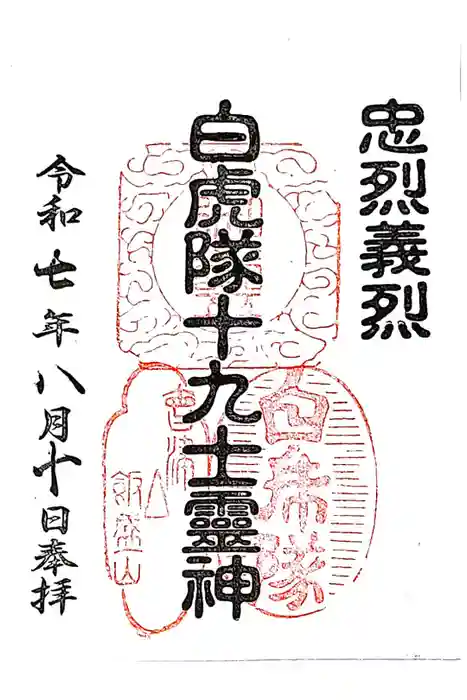 忠烈義烈
白虎隊十九士靈神
令和七年八月十日奉拝
白虎隊
飯盛山